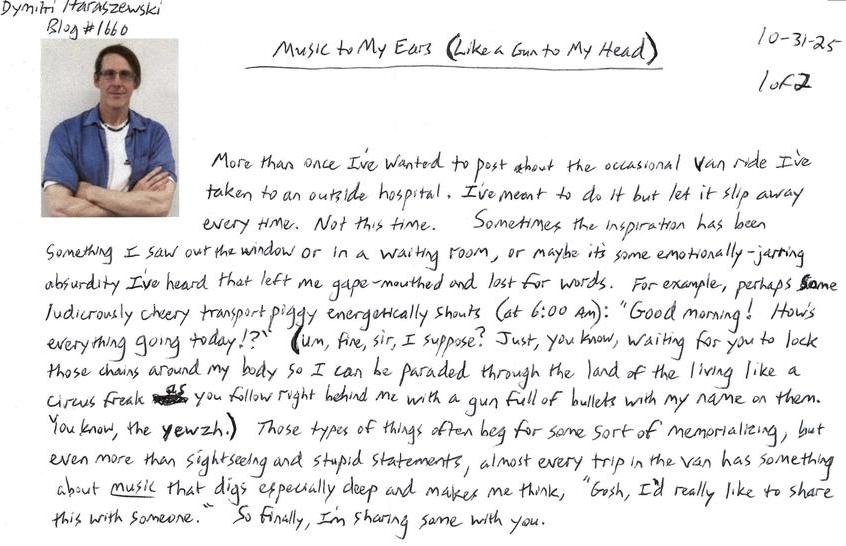 Dymitri Haraszewski
Blog #1660
Music to My Ears (Like a Gun to My Head)
10-31-25
1 of 2
More than once I've wanted to post about the occasional van ride I've
taken to an outside hospital. I've meant to do it but let it slip away
every time. Not this time. Sometimes the inspiration has been
something I saw out the window or in a waiting room, or maybe it's some emotionally-jarring
absurdity I've heard that left me gape-mouthed and lost for words. For example, perhaps some
ludicrously cheery transport piggy energetically shouts (at 6:00 AM): "Good morning! How's
everything going today!?" (um, fine, sir, I suppose? Just, you know, waiting for you to lock
those chains around my body so I can be paraded through the land of the living like a
circus freak as you follow right behind me with a gun full of bullets with my name on them.
You know, the yewzh.) Those types of things often beg for some sort of memorializing, but
even more than sightseeing and stupid statements, almost every trip in the van has something
about music that digs especially deep and makes me think, "Gosh, I'd really like to share
this with someone." So finally, I'm sharing some with you.